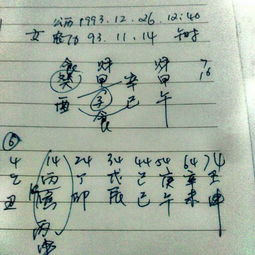 公历 1993.12.26. 12:40
女 93.11.14 午时
食 财 财 7
癸 甲 辛 甲 16
酉 子 巳 午
食
⑥
4 14 24 34 44 54 64 74
乙 丙 丁 戊 己 庚 辛 壬
丑 寅 卯 辰 巳 午 未 申